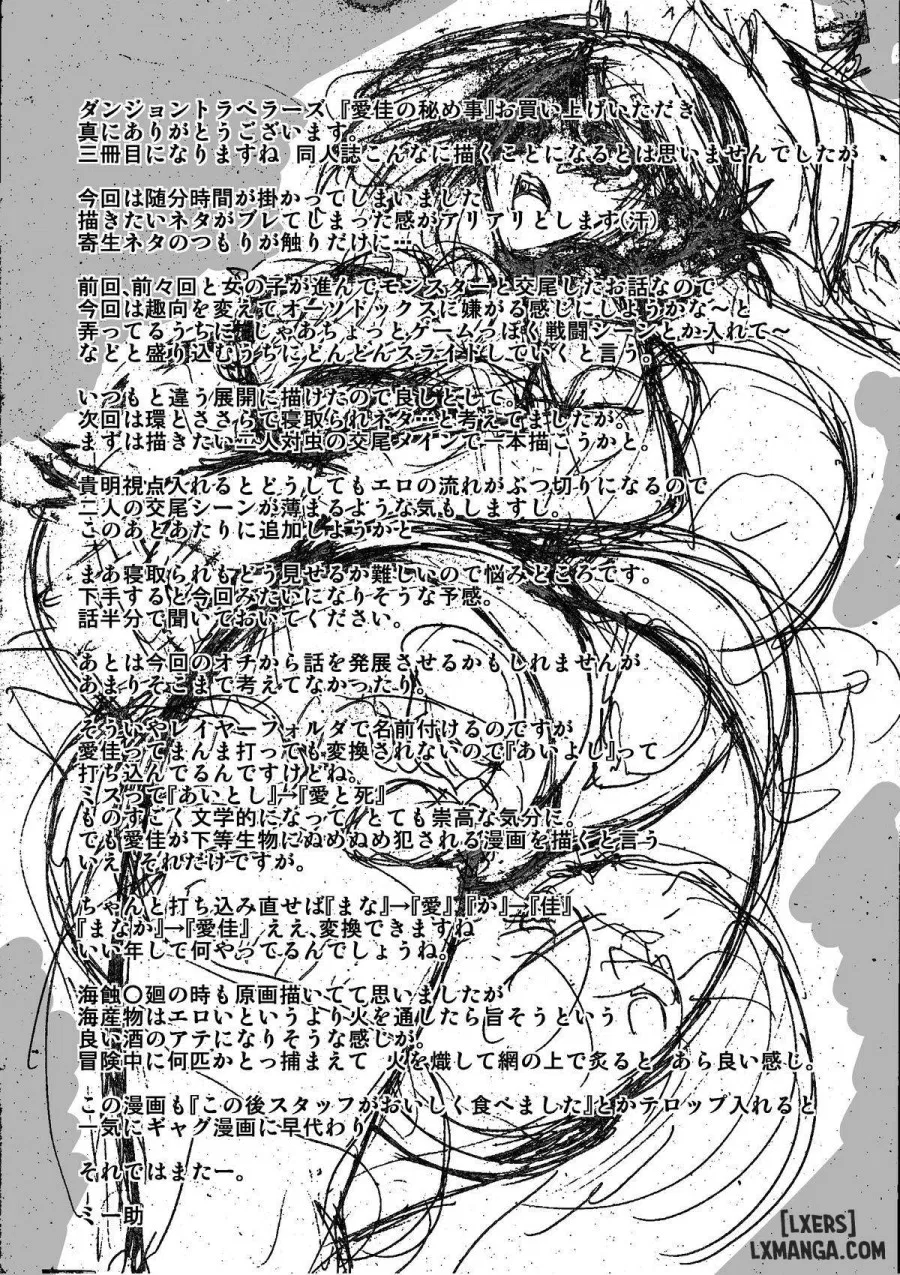 ダンジョントラベラーズ 『愛佳の秘め事』お買い上げいただき
真にありがとうございます。
三冊目になりますね 同人誌こんなに描くことになるとは思いませんでしたが
今回は随分時間が掛かってしまいました
描きたいネタがブレてしまった感がアリアリとします(汗)
寄生ネタのつもりが触りだけに…
前回、前々回と女の子が進んでモンスターと交尾したお話なので
今回は趣向を変えてオーソドックスに嫌がる感じにしようかな～と
弄ってるうちに じゃあちょっとゲームっぽく戦闘シーンとか入れて～
などと盛り込むうちにどんどんスライドしていくと言う。
いつもと違う展開に描けたので良しとして。
次回は環とささらで寝取られネタ…と考えてましたが。
まずは描きたい二人対虫の交尾メインで一本描こうかと。
貴明視点入れるとどうしてもエロの流れがぶつ切りになるので
二人の交尾シーンが薄まるような気もしますし。
このあとあたりに追加しようかと
まあ寝取られもどう見せるか難しいので悩みどころです。
下手すると今回みたいになりそうな予感。
話半分で聞いておいてください。
あとは今回のオチから話を発展させるかもしれませんが
あまりそこまで考えてなかったり。
そういやレイヤーフォルダで名前付けるのですが
愛佳ってまんま打っても変換されないので『あいよし』って
打ち込んでるんですけどね。
ミスって『あいとし』→『愛と死』
ものすごく文学的になって とても崇高な気分に。
でも愛佳が下等生物にぬめぬめ犯される漫画を描くと言う
いえ それだけですが。
ちゃんと打ち込み直せば『まな』→『愛』『か』→『佳』
『まなか』→『愛佳』 ええ、変換できますね
いい年して何やってるんでしょうね。
海蝕〇廻の時も原画描いてて思いましたが
海産物はエロいというより火を通したら旨そうという
良い酒のアテになりそうな感じが。
冒険中に何匹かとっ捕まえて 火を熾して網の上で炙ると あら良い感じ。
この漫画も『この後スタッフがおいしく食べました』とかテロップ入れると
一気にギャグ漫画に早代わり
それではまたー。
ミ一助
[LXERS]
LXMANGA.COM